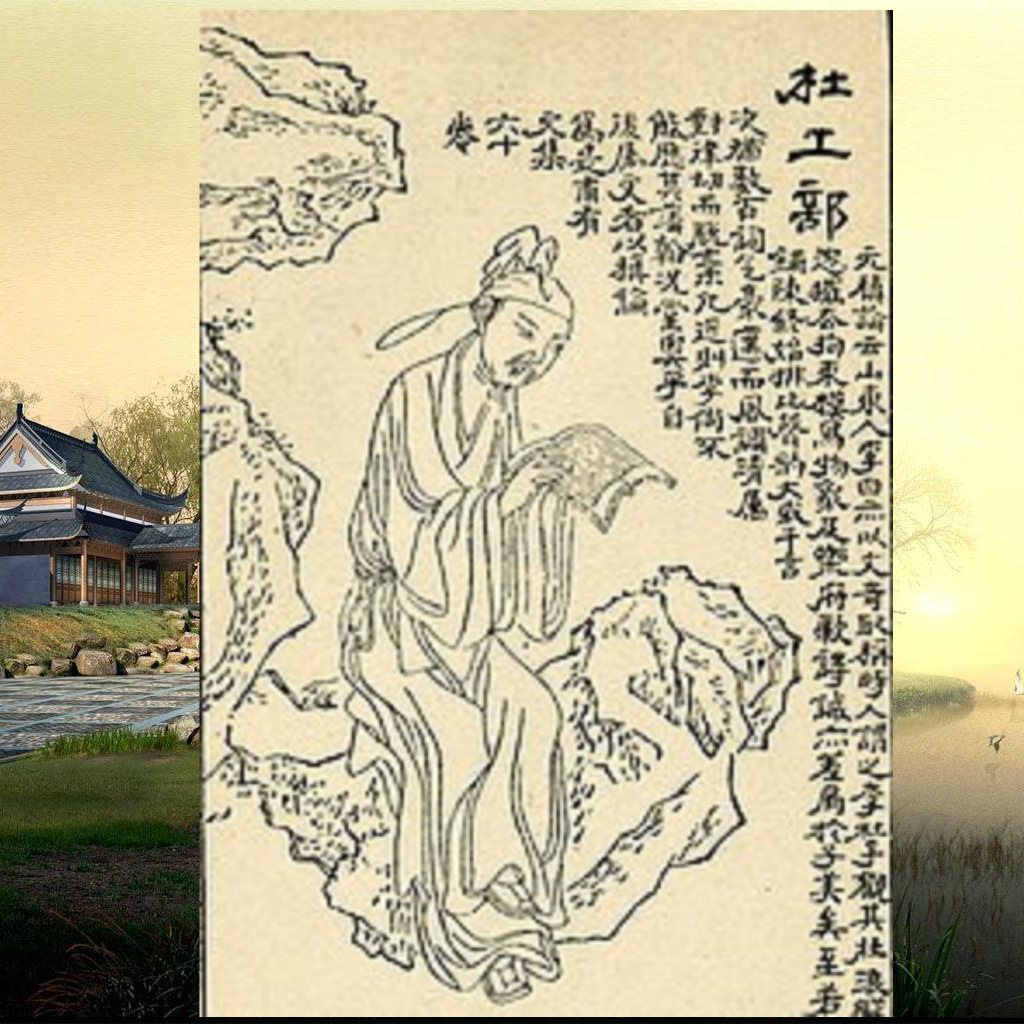 杜工部
元稹論云山東人李白亦以文奇取稱時人謂之李杜予觀其壯浪縱
恣擺去拘束模寫物象及樂府歌詩誠亦差肩於子美矣至若
鋪陳終始排比聲韵大或千言
次猶數百詞氣豪邁而風調清屬
對律切而脫棄凡近則李尚不
能歷其藩翰況堂奧乎自
後屬文者以稹論
為是甫有
文集
六十
卷